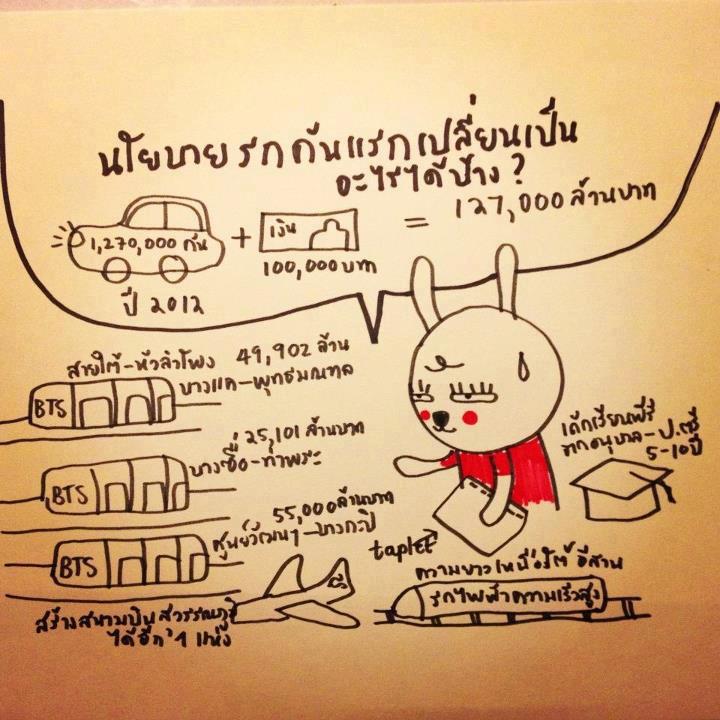 นโยบายรถคันแรกเปลี่ยนเป็น
อะไรได้บ้าง?
1,270,000 คัน
+
เงิน
100,000 บาท
= 127,000 ล้านบาท
ปี 2012
สายใต้-หัวลำโพง 49,902 ล้าน
บางแค-พุทธมณฑล
BTS
25,101 ล้านบาท
บางซื่อ-ท่าพระ
BTS
55,000 ล้านบาท
ศูนย์วัฒนฯ-บางกะปิ
BTS
เด็กเรียนฟรี
ป.ตรี
5-10 ปี
taplet
ความยาวเหนือใต้ อีสาน
รถไฟฟ้าความเร็วสูง
สร้างสนามบินสุวรรณภูมิ
ได้อีก 1 แห่ง